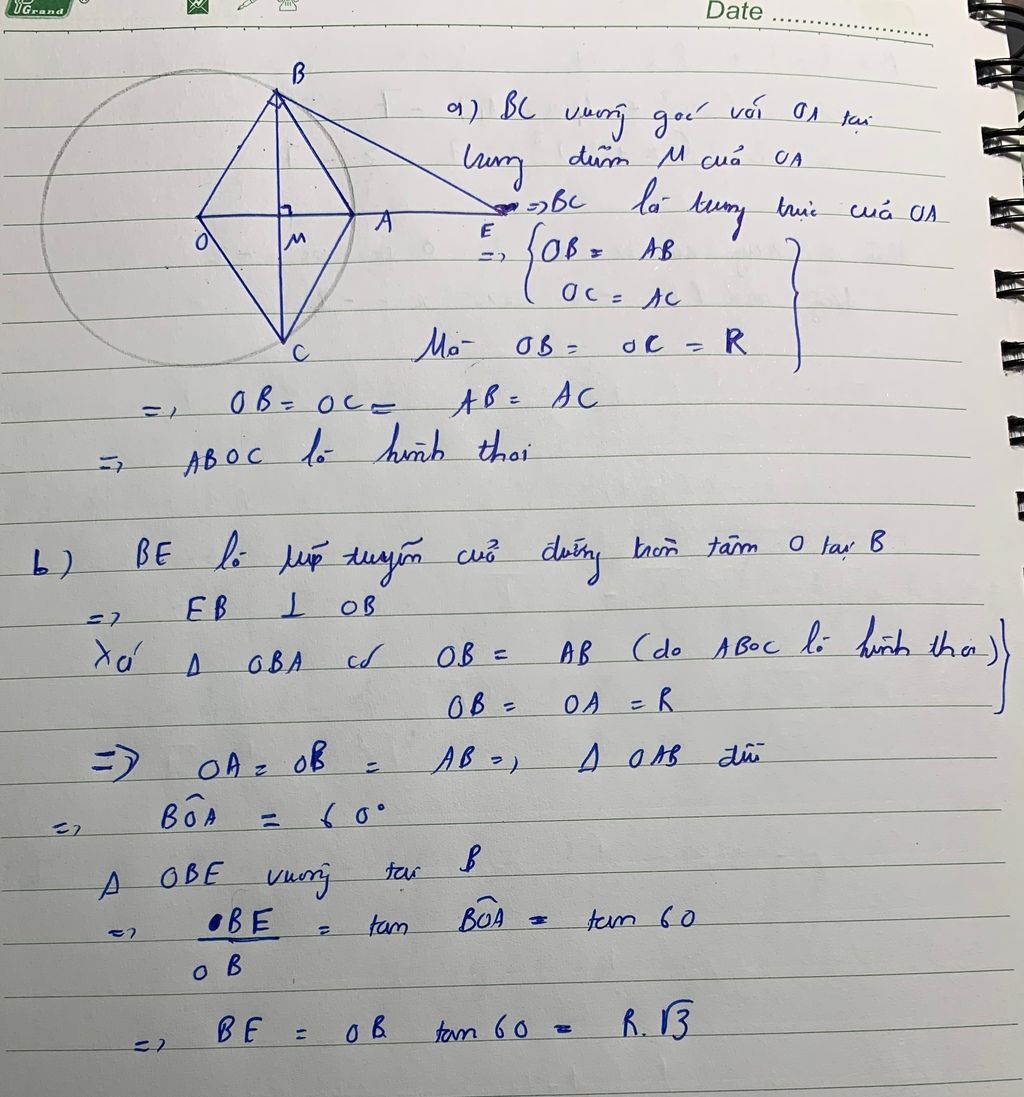 Grand
Date
B
O
M
A
E
C
a) BC vuông góc với OA tại
trung điểm M của OA
=> BC là trung trực của OA
=> { OB = AB
OC = AC
Mà OB = OC = R
=> OB = OC = AB = AC
=> ABOC là hình thoi
b) BE là tiếp tuyến của đường tròn tâm O tại B
=> EB ⊥ OB
Xét Δ OBA có OB = AB (do ABOC là hình thoi)
OB = OA = R
=> OA = OB = AB => Δ OAB đều
=> BÔA = 60°
Δ OBE vuông tại B
=> BE/OB = tan BÔA = tan 60
=> BE = OB tan 60 = R.√3